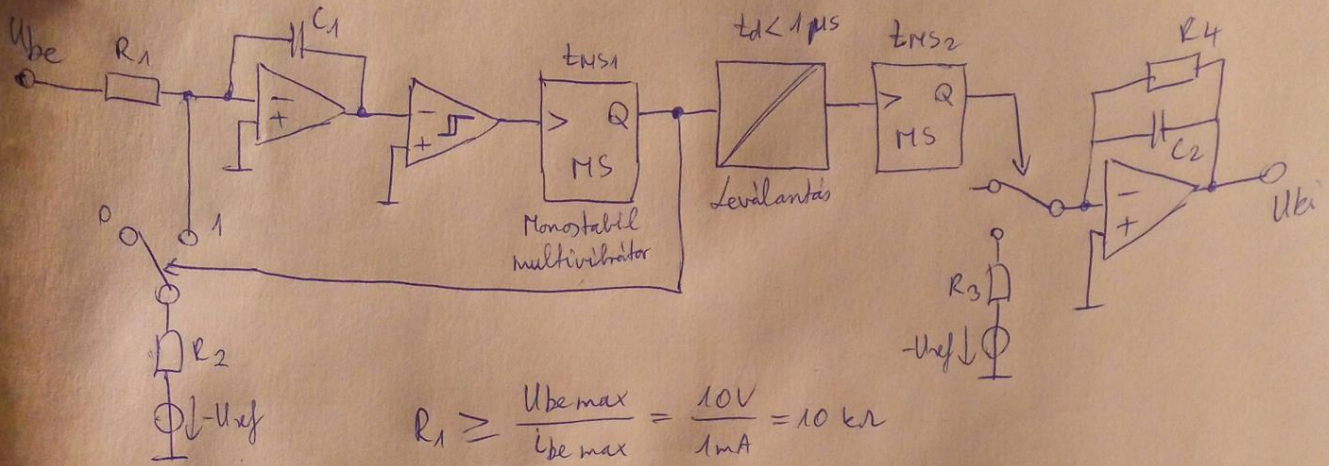 Ube
R1
C1
-
+
-
+
tMS1
> Q
MS
Monostabil
multivibrátor
td < 1 µs
Leválasntás
tMS2
> Q
MS
R4
C2
-
+
Uki
0
1
R2
-Uref
R3
-Uref
R1 ≥ Ube max / ibe max = 10V / 1mA = 10 kΩ